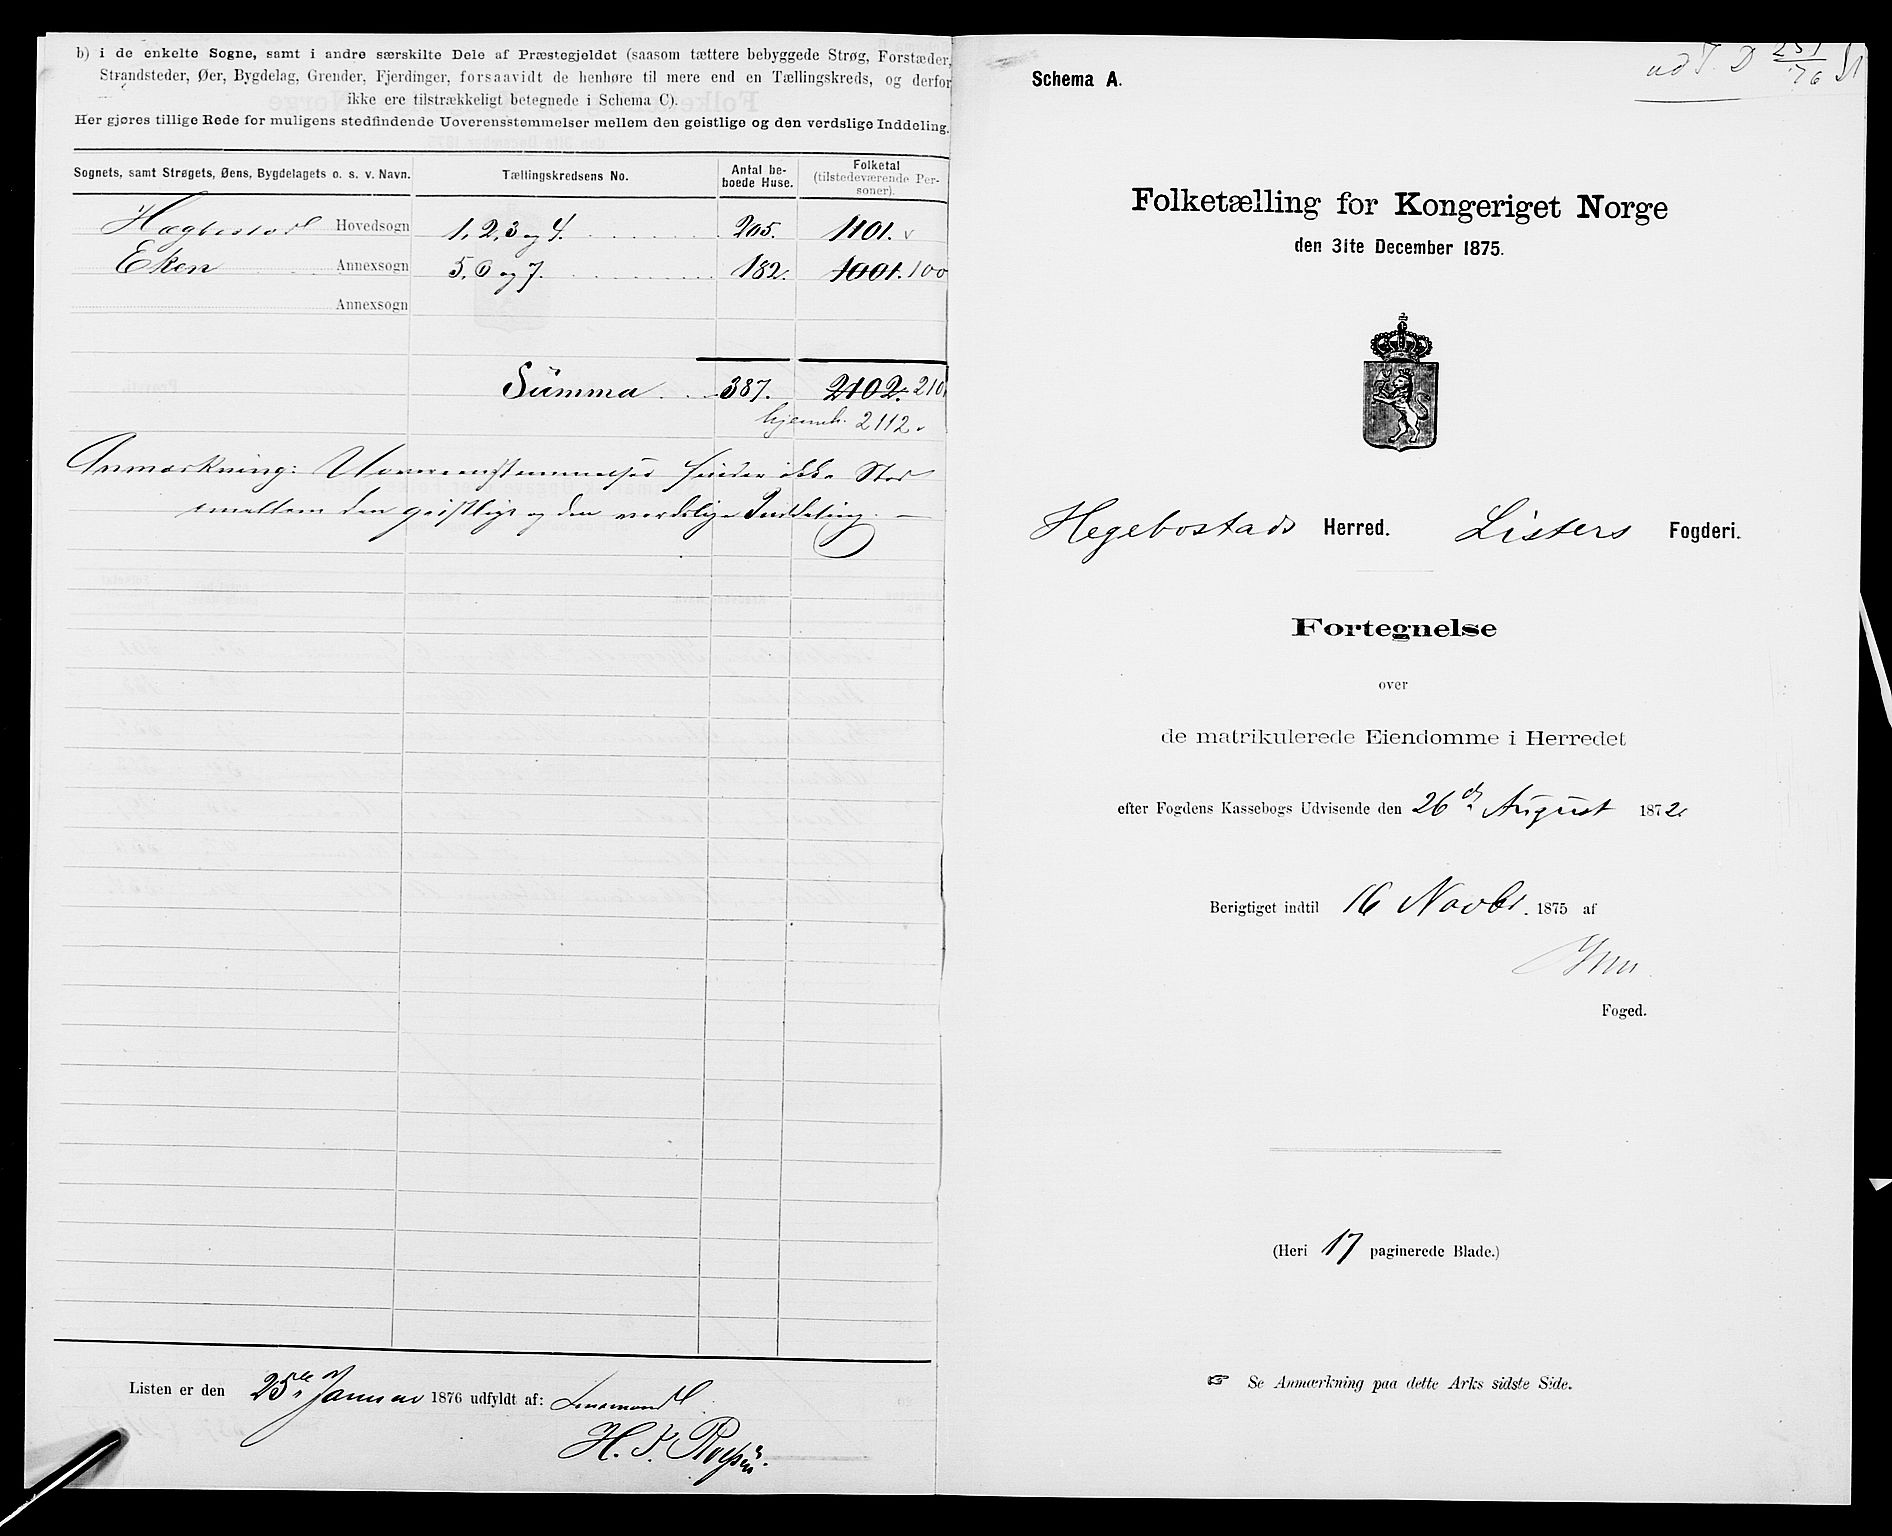 b) i de enkelte Sogne, samt i andre særskilte Dele af Præstegjeldet (saasom tættere bebyggede Strøg, Forstæder,
Strandsteder, Øer, Bygdelag, Grender, Fjerdinger, forsaavidt de henhøre til mere end en Tællingskreds, og derfor
ikke ere tilstrækkeligt betegnede i Schema C).
Her gjøres tillige Rede for muligens stedfindende Uoverensstemmelser mellem den geistlige og den verdslige Inddeling.
Sognets, samt Strøgets, Øens, Bygdelagets o. s. v. Navn. Tællingskredsens No. Antal beboede Huse. Folketal (tilstedeværende Personer).
Hægbostad Hovedsogn 1, 2, 3 og 4. 205. 1101.
Eken Annexsogn 5, 6 og 7. 182. 1001. 100
Annexsogn
Summa 387. 2102. 210
hjemh. 2112
Anmærkning: Uoverensstemmelser finder ikke Sted
mellem den geistlige og den verdslige Inddeling. —
Listen er den 25de Januar 1876 udfyldt af: Lensmand
H. 
Schema A.
Folketælling for Kongeriget Norge
den 31te December 1875.
Hegebostads Herred. Listers Fogderi.
Fortegnelse
over
de matrikulerede Eiendomme i Herredet
efter Fogdens Kassebogs Udvisende den 26de August 1872
Berigtiget indtil 16 Novbr. 1875 af
Foged.
(Heri 17 paginerede Blade.)
☞ Se Anmærkning paa dette Arks sidste Side.